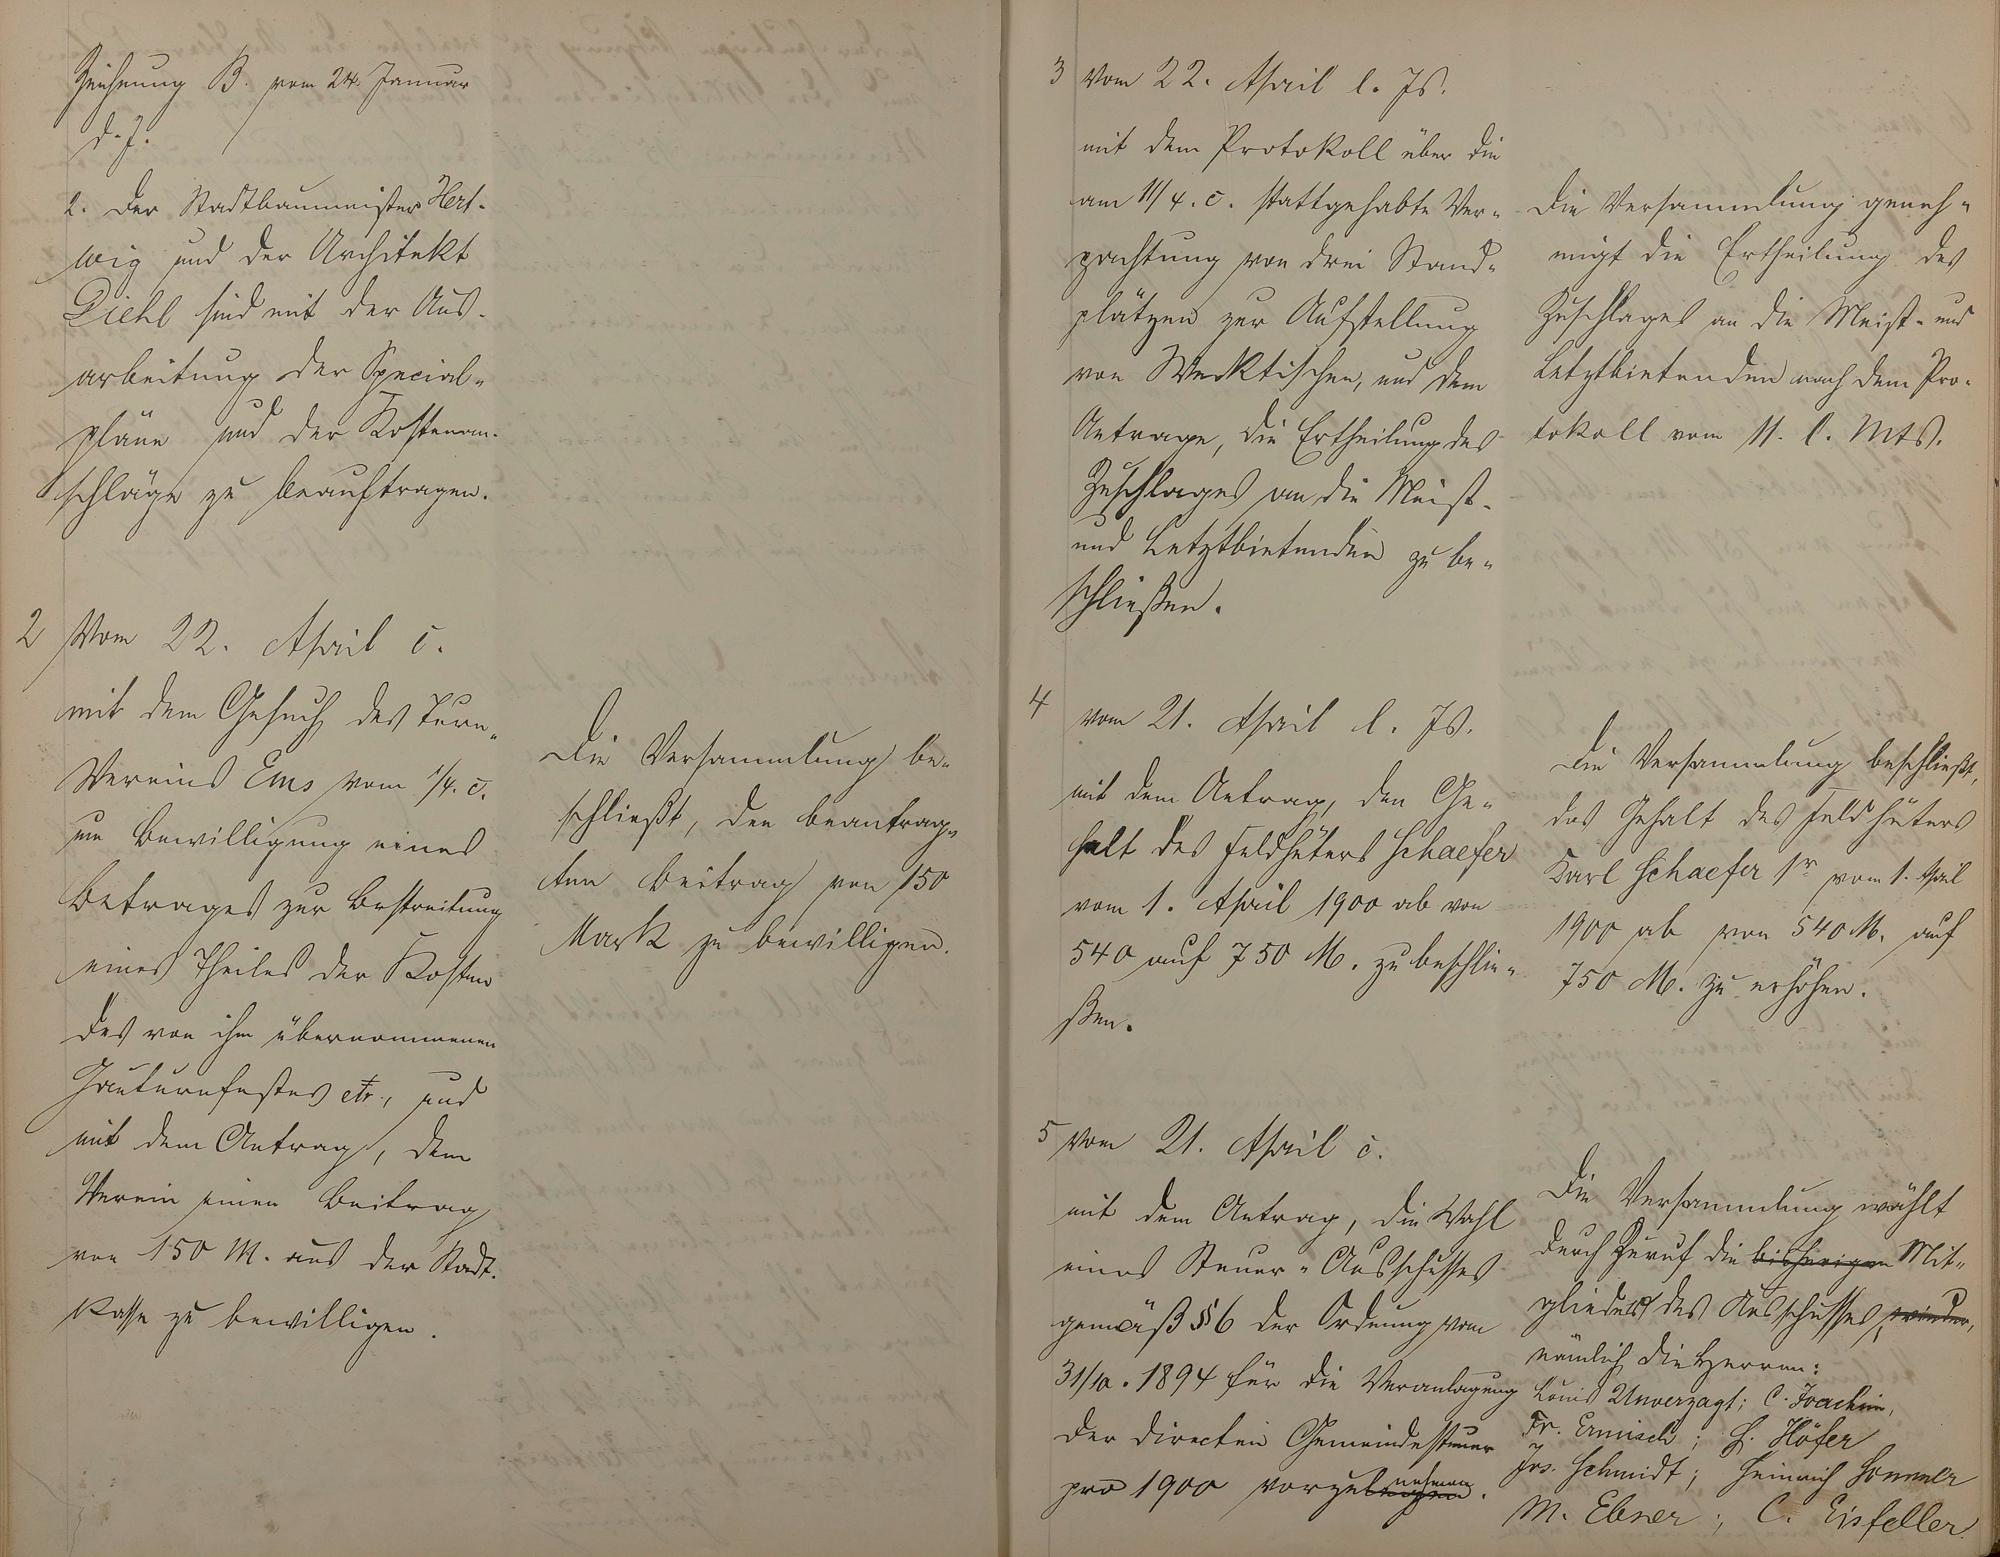 Zeichnung B. vom 24. Januar
d. J.
2. Der Stadtbaumeister Hert-
wig und der Architekt
Diehl sind mit der Aus-
arbeitung der Special-
pläne und der Kostenan-
schläge zu beauftragen.
2 Vom 22. April c.
mit dem Gesuch des Turn-
Vereins Ems vom 1/4. c.
um Bewilligung eines
Betrages zur Bestreitung
eines Theiles der Kosten
des von ihm übernommenen
Gauturnfestes etc., und
mit dem Antrag, dem
Verein einen Beitrag
von 150 M. aus der Stadt-
kasse zu bewilligen.
Die Versammlung be-
schließt, den beantrag-
ten Beitrag von 150
Mark zu bewilligen.
3 Vom 22. April l. Js.
mit dem Protokoll über die
am 11/4. c. stattgehabte Ver-
pachtung von drei Stand-
plätzen zur Aufstellung
von Wecktischen, und dem
Antrage, die Ertheilung des
Zuschlages an die Meist-
und Letztbietenden zu be-
schließen.
Die Versammlung geneh-
migt die Ertheilung des
Zuschlages an die Meist- und
Letztbietenden nach dem Pro-
tokoll vom 11. l. Mts.
4 vom 21. April l. Js.
mit dem Antrag, den Ge-
halt des Feldhüters Schaefer
vom 1. April 1900 ab von
540 auf 750 M. zu beschlie-
ßen.
Die Versammlung beschließt,
das Gehalt des Feldhüters
Karl Schaefer 1r vom 1. April
1900 ab von 540 M. auf
750 M. zu erhöhen.
5 Vom 21. April c.
mit dem Antrag, die Wahl
eines Steuer-Ausschusses
gemäß §6 der Ordnung vom
31/10. 1894 für die Veranlagung
der directen Gemeindesteuer
pro 1900 vorzunehmen.
Die Versammlung wählt
durch Zuruf die bisherigen Mit-
glieder des Ausschusses wieder,
nämlich die Herren:
Louis Unverzagt; C. Joachim,
Fr. Ermisch; H. Höfer
Jos. Schmidt; Heinrich Sommer
M. Ebner; C. Eisfeller